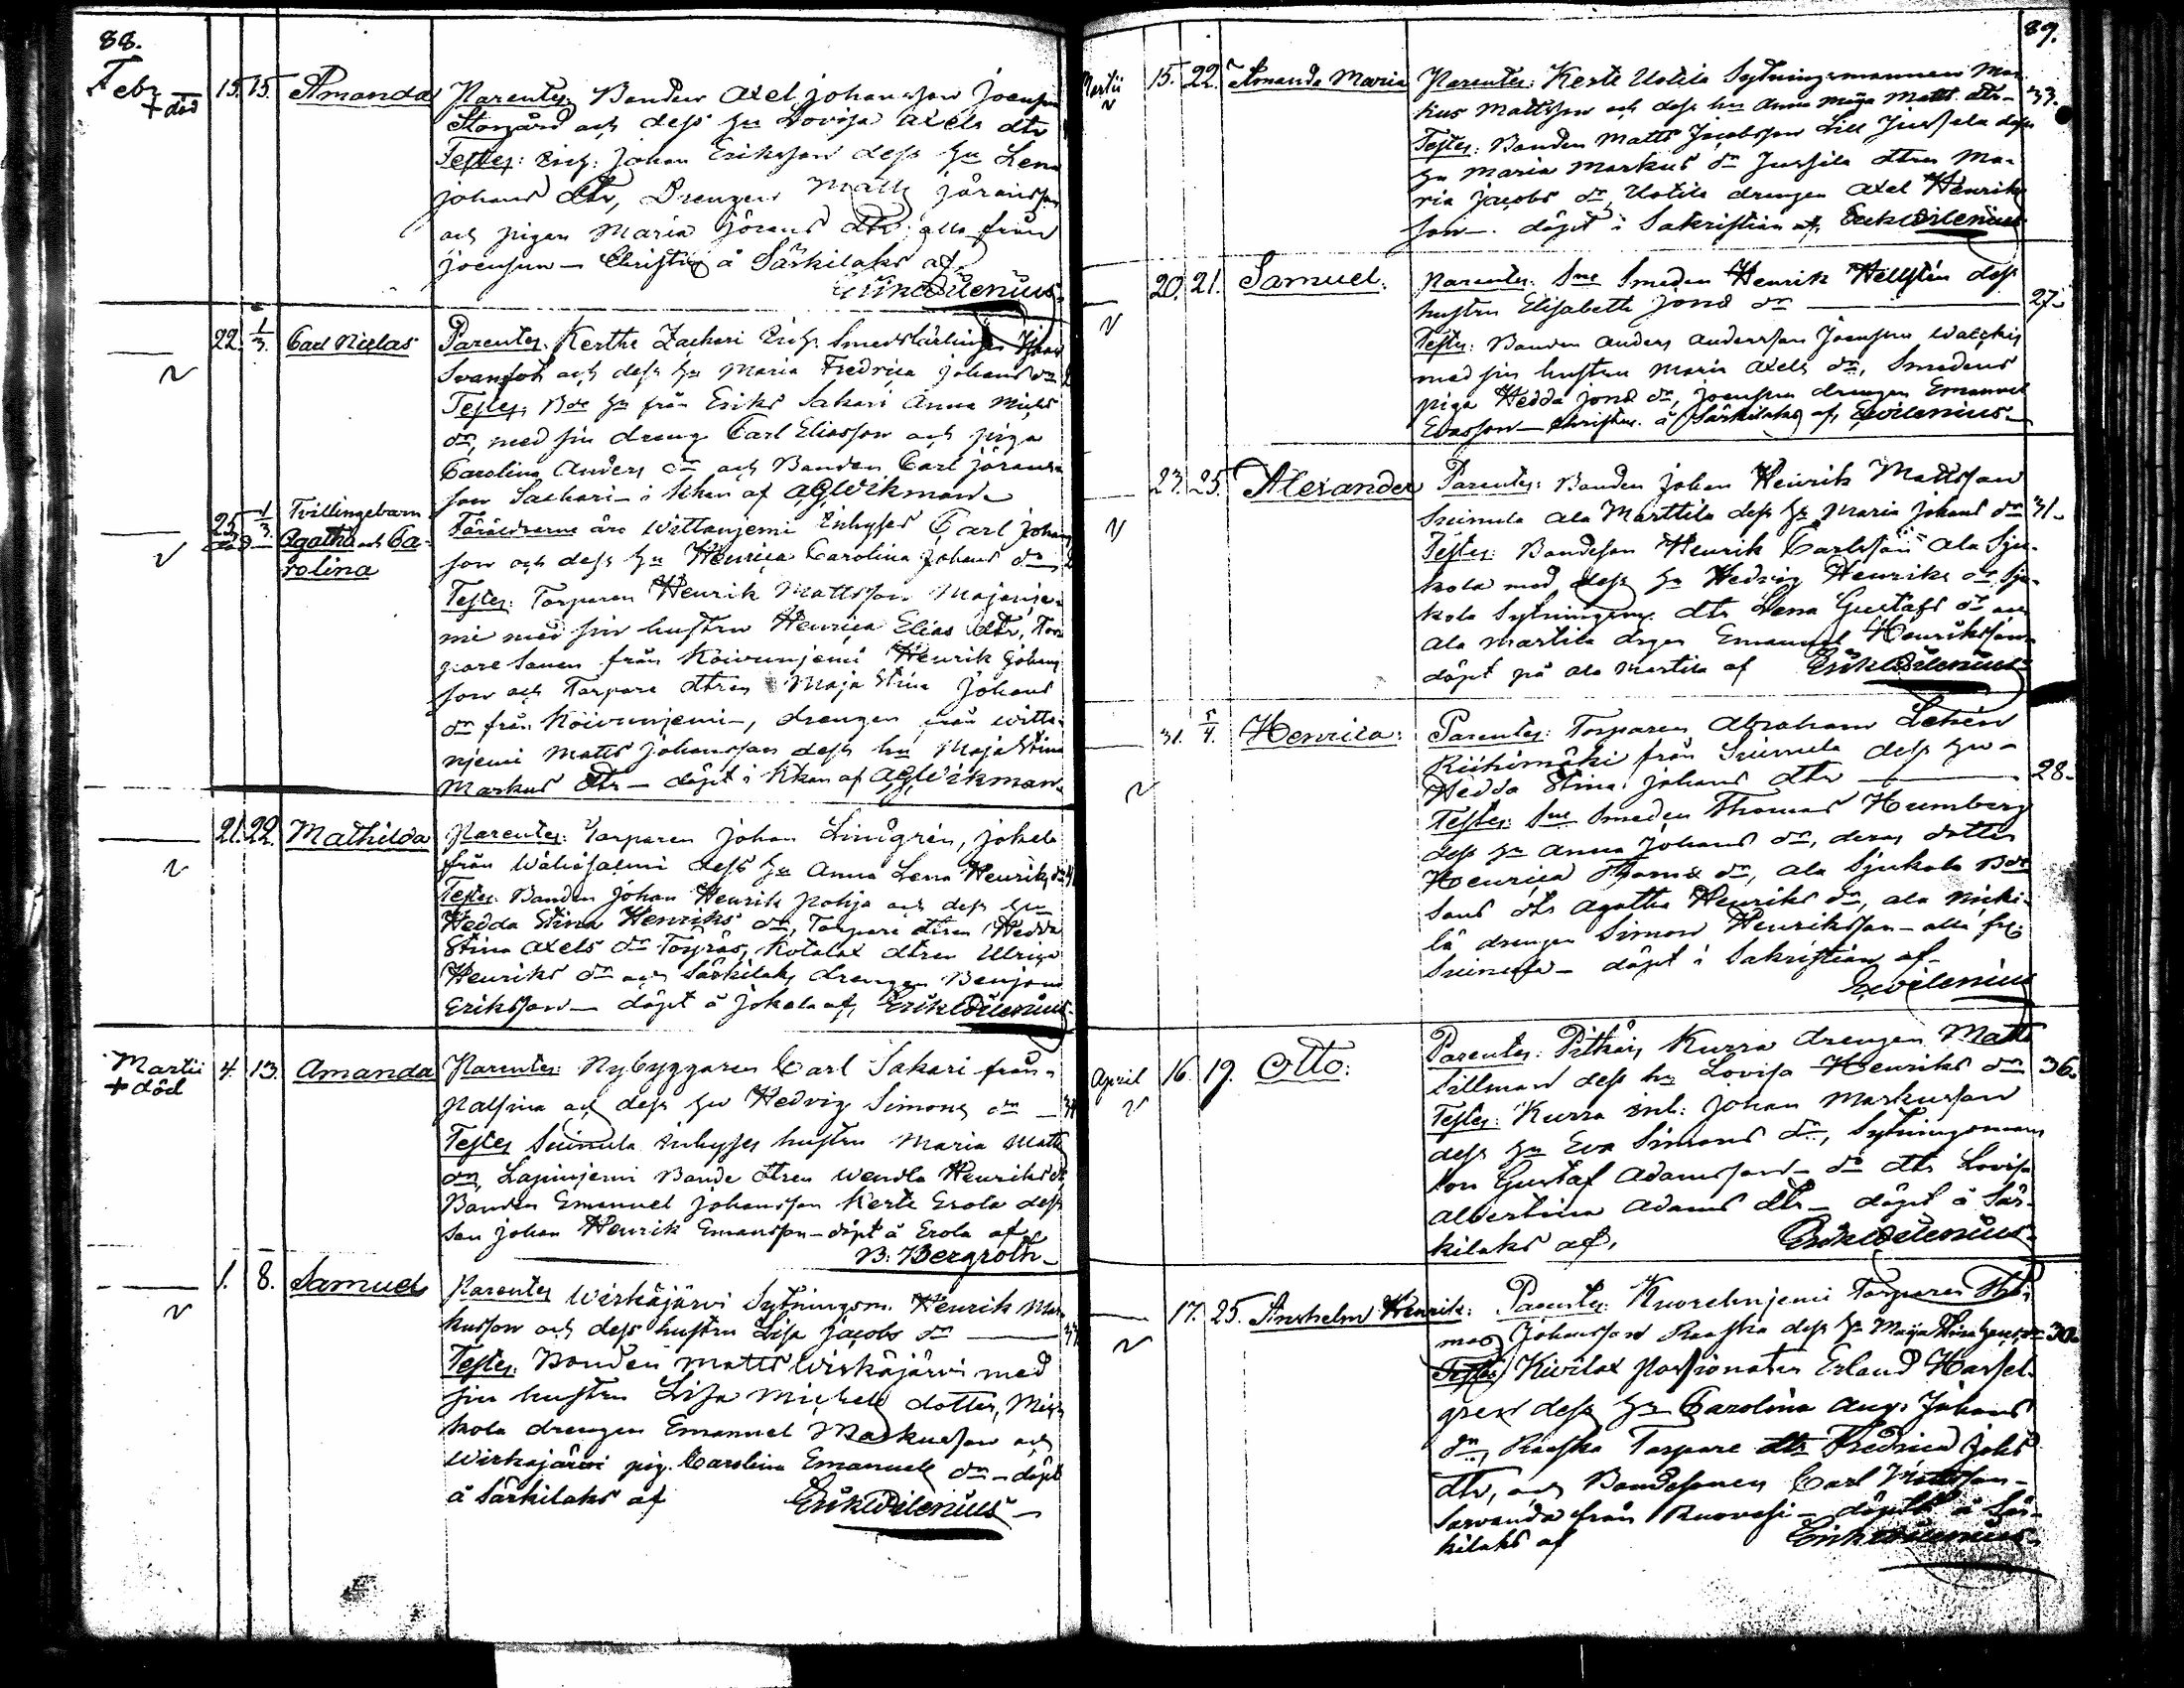 88.
Febr 15. 15. Amanda Parentes: Bonden Axel Johansson Joensuu
+ död Storgård och dess hu Lovisa Axels dtr
Testes: Inh: Johan Eriksson dess hu Lena
Johans dtr, Drengen Matts Göransson
och pigan Maria Görans dtr alla från
Joensuu – Christn å Särkilaks af
Erik Wilenius
22. 1/3. Carl Niclas Parentes: Kerthe Zachari Inhys. Smedslärlingen
Svanfot och dess hu Maria Fredrica Johans dr
Testes: Bde hu från Eriks Sakari Anna Michs
dr, med sin dreng Carl Eliasson och piga
Carolina Anders dr och Bonden Carl Jörans-
son Sackari – i kkan af AGWikman
25 1/3. Tvillingebarn Föräldrarne äro Wittaniemi Inhyses Carl Johans
död Agatha och Ca- son och dess hu Henrica Carolina Johans dr
rolina Testes: Torparen Henrik Mattsson Majanie-
mi med sin hustru Henrica Elias dtr, Tor-
pare Sonen från Koivuniemi Henrik Johans
son och Torpare dtren Maja Stina Johans
dr från Koivuniemi –, drengen från Witta-
niemi Matts Johansson dess hu Maja Stina
Markus dtr – döpt i kkan af AGWikman
21. 22. Mathilda Parentes: Torparen Johan Lindgrén, Jokela
från Wähäsalmi dess hu Anna Lena Henriks dr
Testes: Bonden Johan Henrik Pohja och dess hu
Hedda Stina Henriks dr, Torpare dtren Hedda
Stina Axels dr Torpas, Kotalax dtren Ulrica
Henriks dr och Särkilaks drengen Benjam
Eriksson – döpt å Jokela af, Erik Wilenius
Martii 4. 13. Amanda Parentes: Nybyggaren Carl Sakari från
+ död Palsina och dess hu Hedvig Simons dr –
Testes Suinula Inhyses hustru Maria Matts
dr, Lapinjemi Bonde dtren Wendla Henriks dr
Bonden Emanuel Johansson Kerte Erola dess
son Johan Henrik Emansson – döpt å Erola af
B. Bergroth –
1. 8. Samuel Parentes Wirkäjärvi Sytningsm. Henrik Mar-
kusson och dess hustru Lisa Jacobs dr
Testes: Bonden Matts Wirkäjärvi med
sin hustru Lisa Michels dotter,
kola drengen Emanuel Markusson och
Wirkäjärvi pig. Carolina Emanuels dr – döpt
å Särkilaks af Erik Wilenius –
89.
Martii 15. 22. Amanda Maria Parentes: Kerte Uotila Sytningsmannen Mar-
kus Mattsson och dess hu Anna Maja Matts dtr – 33.
Testes: Bonden Matts Jacobsson Lill Jussila dess
hu Maria Markus dr Jussila dtren Ma-
ria Jacobs dr, Uotila drengen Axel Henriks
son –. döpt i Sakristian af, Erik Wilenius
20. 21. Samuel. Parentes: Sne Smeden Henrik Hellstén dess
hustru Elisabeth Jons dr 27.
Testes: Bonden Anders Andersson Joensuu
med sin hustru Maria Axels dr, Smedens
piga Hedda Jons dr, Joensuu drengen Emanuel
Evasson – Christn. å Särkilaks af, EWilenius –
23. 25. Alexander Parentes: Bonden Johan Henrik Mattsson
Suinula Ala Marttila dess hu Maria Johans dr 31.
Testes: Bondeson Henrik Carlsson Ala Sju-
kola med dess hu Hedvig Henriks dr Sju-
kola Sytningsm. dtr Lena Gustafs dr och
Ala Martila drgen Emanuel Henriksson
döpt på Ala Martila af Erik Wilenius
31. 5/4. Henrica: Parentes: Torparen Abraham Lehén
Riihimäki från Suinula dess hu –
Hedda Stina Johans dtr 28.
Testes: Sne Smeden Thomas Humberg
dess hu Anna Johans dr, deras dotter
Henrica Thoms dr, Ala Sjukola Bde
Sons dtr Agatha Henriks dr, Ala Micki-
lä drengen Simon Henriksson – alla fr.
Suinula – döpt i Sakristian af –
EWilenius
April 16. 19. Otto: Parentes: Pitkäis Kurra drengen Matts
Sillman dess hu Lovisa Henriks dr 36.
Testes: Kurra Inh: Johan Markusson
dess hu Eva Simons dr, Sytningsmans
son Gustaf Adamsson – dr dtr Lovisa
Albertina Adams dtr – döpt å Sär-
kilaks af, Erik Wilenius
17. 25. Anshelm Henrik: Parentes: Kuorehnjemi Torparen Tho-
mas Johansson Raaska dess hu Maja Stina dr 30.
Testes: Kivilax Possionaten Erland Hassel-
gren dess hu Carolina Aug. Johans
dr, Raaska Torpare dtr Fredrica Johs
dtr, och Bondesonen Carl
Sarvanda från Ruovesi – döpt å Sär-
kilaks af Erik Wilenius